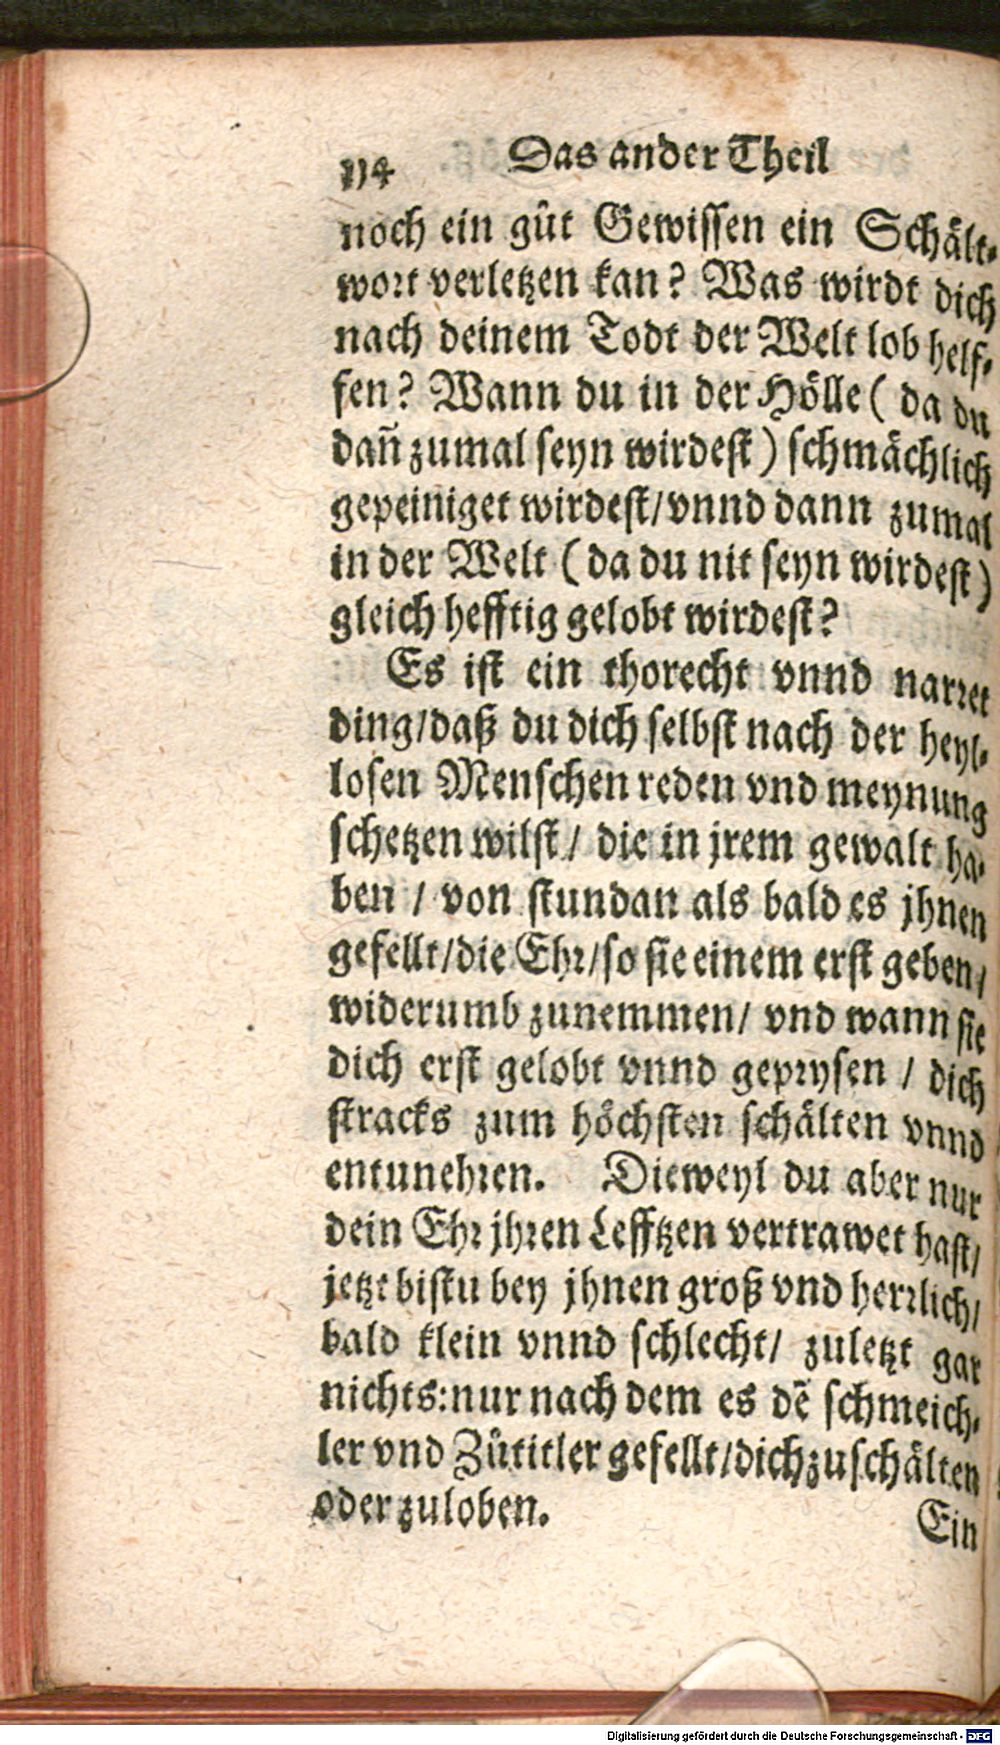 114 Das ander Theil
noch ein gůt Gewissen ein Schält⸗
wort verletzen kan? Was wirdt dich
nach deinem Todt der Welt lob helf⸗
fen? Wann du in der Hölle ( da du
dañ zumal seyn wirdest ) schmächlich
gepeiniget wirdest/ vnnd dann zumal
in der Welt ( da du nit seyn wirdest )
gleich hefftig gelobt wirdest?
Es ist ein thorecht vnnd narret
ding/ daß du dich selbst nach der heyl⸗
losen Menschen reden vnd meynung
schetzen wilst / die in jrem gewalt ha⸗
ben / von stundan als bald es jhnen
gefellt/ die Ehr/ so sie einem erst geben/
widerumb zunemmen/ vnd wann sie
dich erst gelobt vnnd geprysen / dich
stracks zum höchsten schälten vnnd
entunehren. Dieweyl du aber nur
dein Ehr jhren Lefftzen vertrawet hast/
jetzt bistu bey jhnen groß vnd herrlich/
bald klein vnnd schlecht/ zuletzt gar
nichts: nur nach dem es dẽ schmeich⸗
ler vnd Zůtitler gefellt/ dich zu schälten
oder zuloben.
Ein
Digitalisierung gefördert durch die Deutsche Forschungsgemeinschaft - DFG